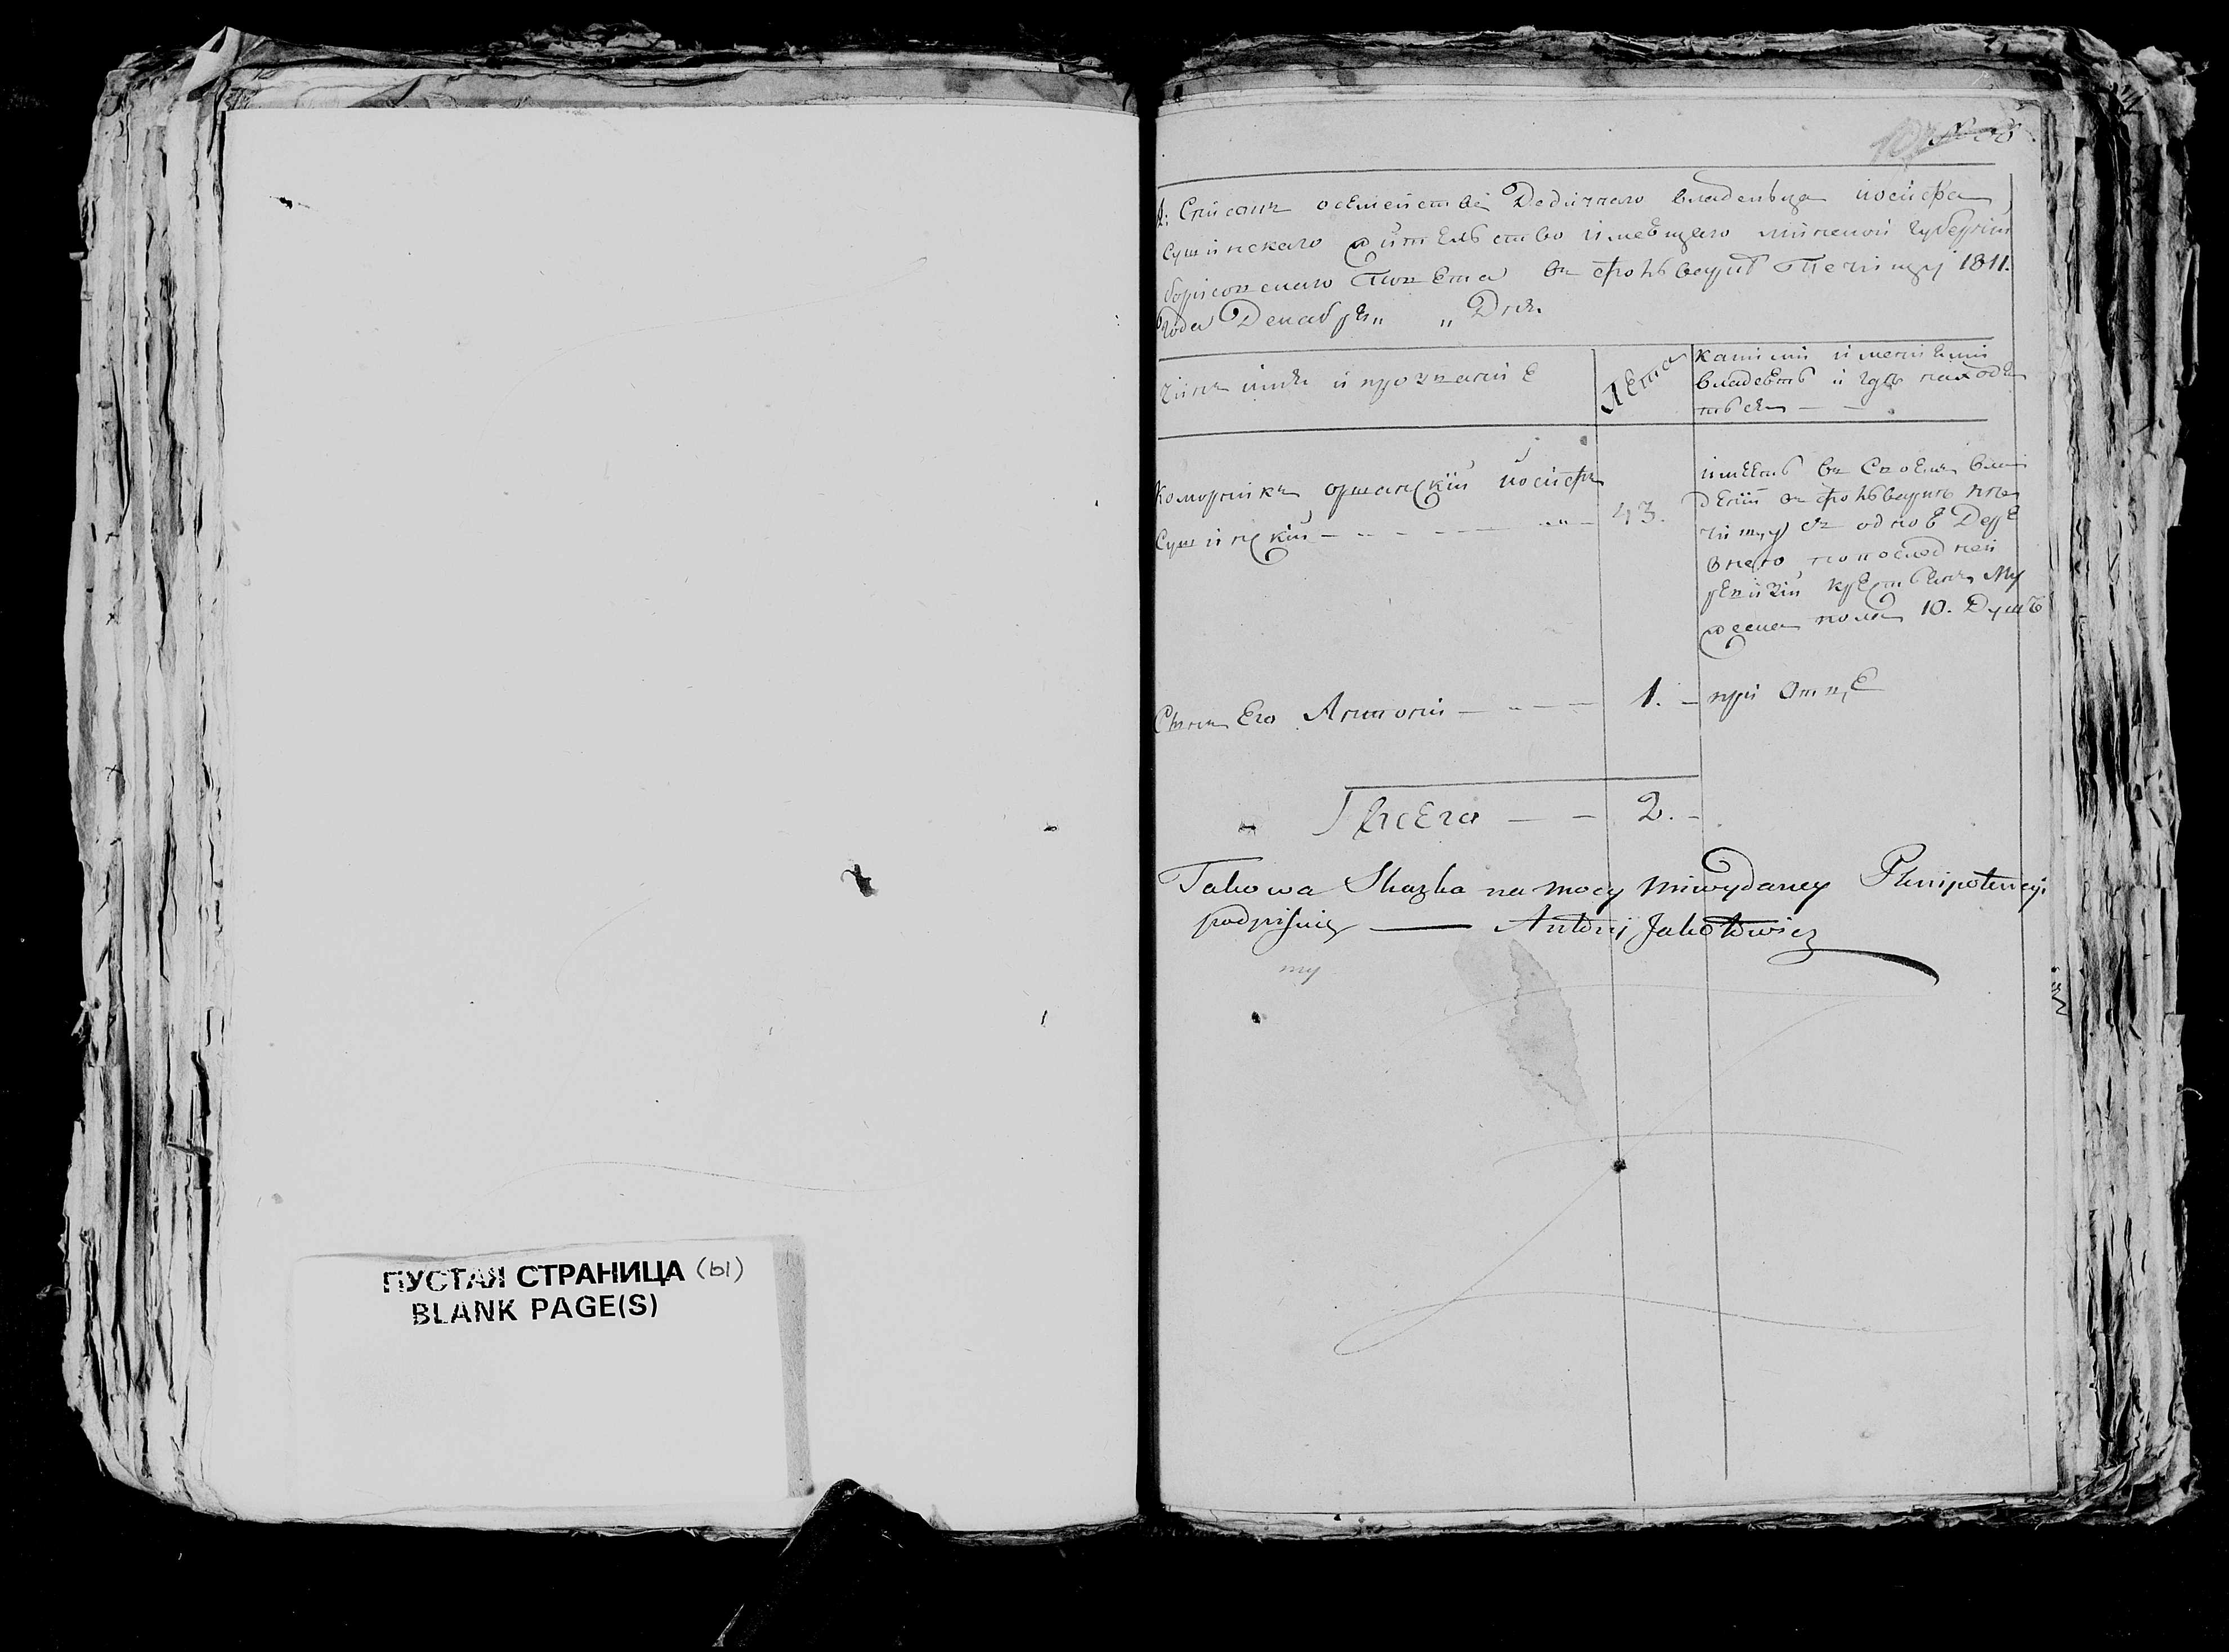 ПУСТАЯ СТРАНИЦА (ы)
BLANK PAGE(S)
Списокъ осемействе Дедичнаго владельца иосифа
Сушинскаго жительство имеещаго минской губернии
борисовскаго Повета въ фольварке 1811.
года Декабря „ „ Дня
Чинъ имя и прозвание
Лета
какими имениями
владееть и где находи
ться — —
Коморникъ оршанский иосифъ
Сушинский — — — — — 43.
имееть въ своемъ вла
дении фольварокъ
съ одною Дере
внею попоследней
ревизии крестьянъ Му
жеска пола 10. Душъ
Сынъ Его Антони — — — 1. — при Отце
Всего — — 2. —
Takowa Skazka na mocy mi wydaney Plenipotencyi
podpisuię — Antoni